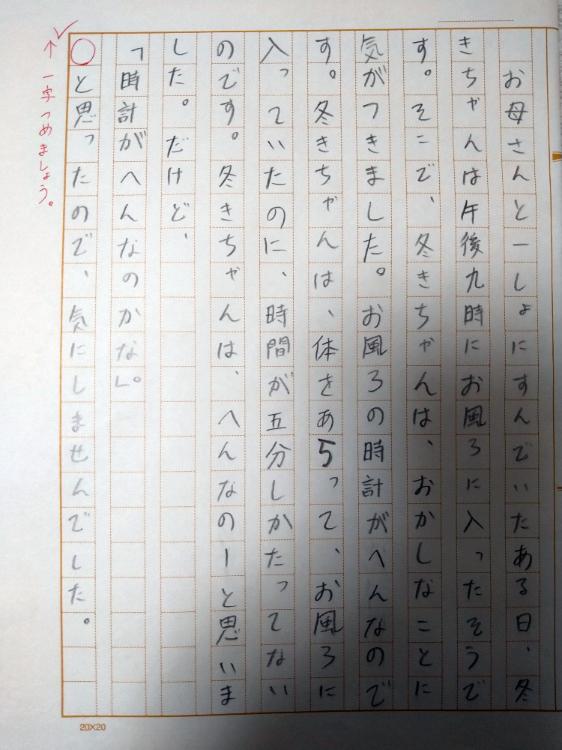 お母さんと一しょにすんでいたある日、冬
きちゃんは午後九時にお風ろに入ったそうで
す。そこで、冬きちゃんは、おかしなことに
気がつきました。お風ろの時計がへんなので
す。冬きちゃんは、体をあらって、お風ろに
入っていたのに、時間が五分しかたってない
のです。冬きちゃんは、へんなのーと思いま
した。だけど、
「時計がへんなのかな」。
○と思ったので、気にしませんでした。
↑一字つめましょう。
20×20